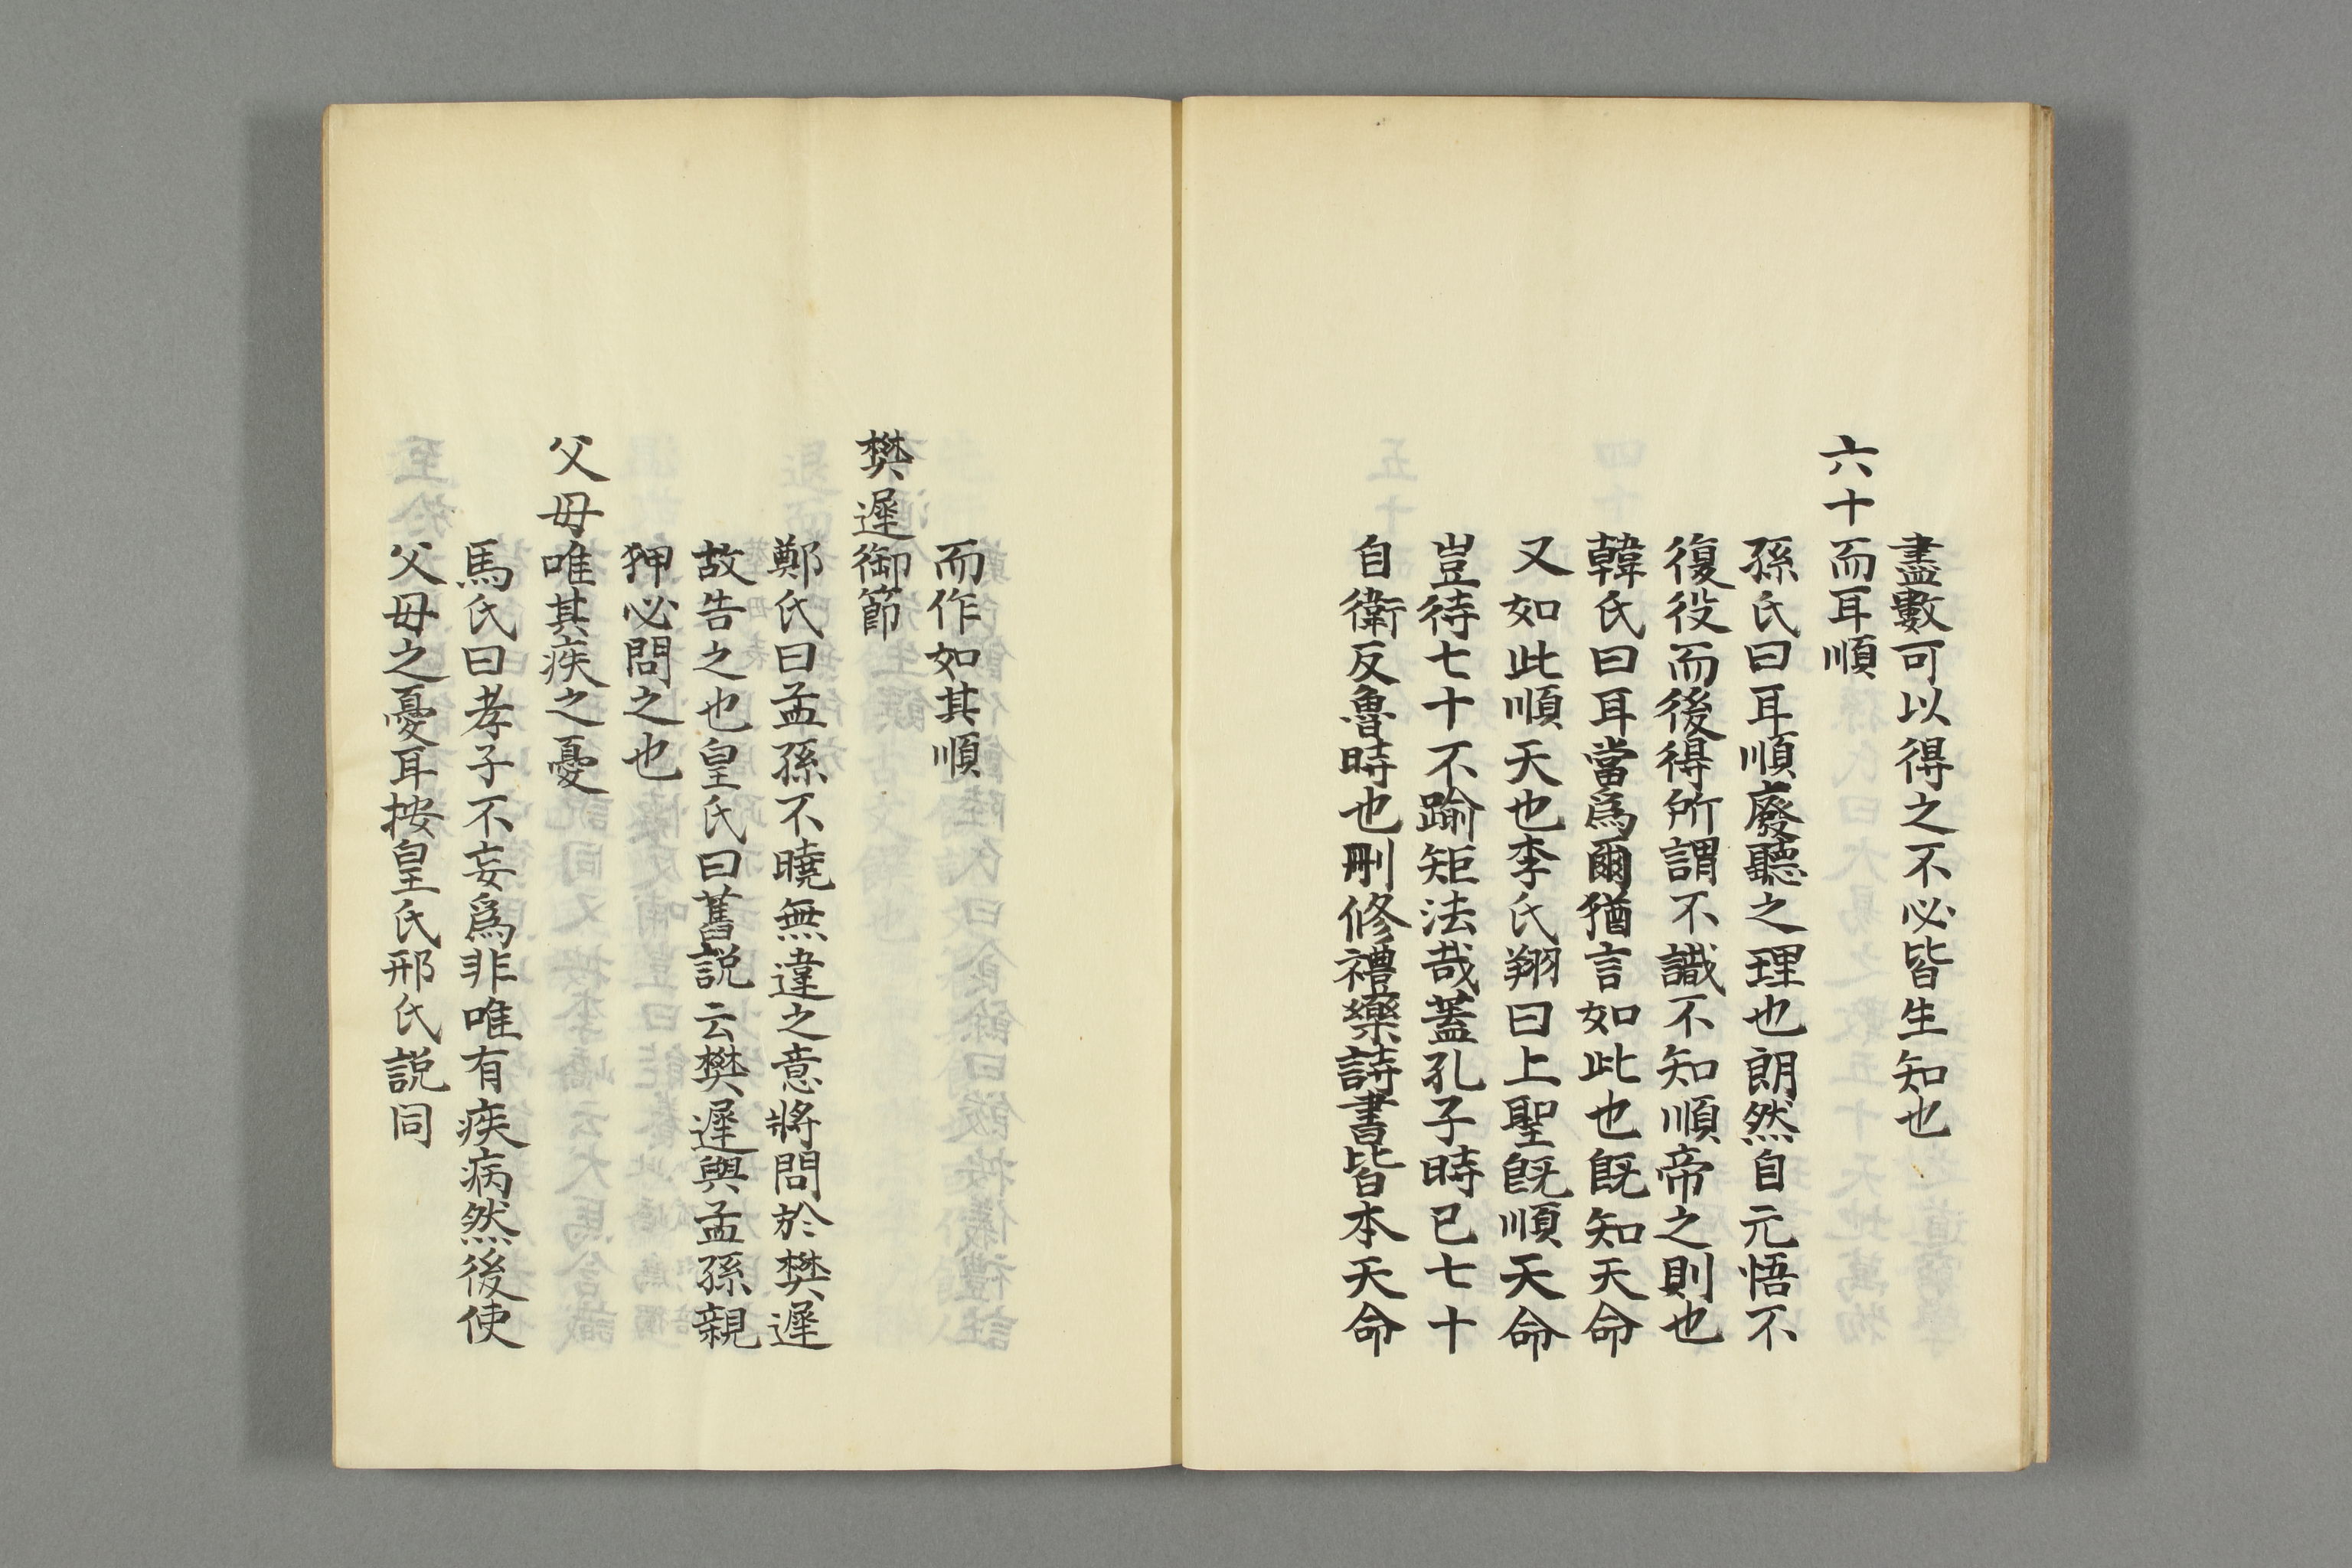 盡數可以得之不必皆生知也
六十而耳順
孫氏曰耳順廢聽之理也朗然自元悟不
復役而後得所謂不識不知順帝之則也
韓氏曰耳當爲爾猶言如此也既知天命
又如此順天也李氏翔曰上聖既順天命
豈待七十不踰矩法哉蓋孔子時已七十
自衛反魯時也刪修禮樂詩書皆本天命
而作如其順
樊遲御節
鄭氏曰孟孫不曉無違之意將問於樊遲
故告之也皇氏曰舊説云樊遲與孟孫親
狎必問之也
父母唯其疾之憂
馬氏曰孝子不妄爲非唯有疾病然後使
父母之憂耳按皇氏邢氏説同